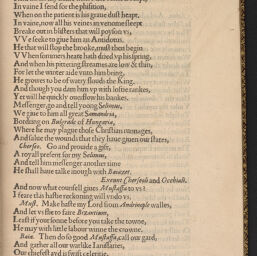 In vaine I send for the phisition,
When on the patient is his graue dust heapt.
In vaine, now all his veines in venome steept
Breake out in blisters that will poyson vs,
VVe seeke to giue him an Antidote.
He that will stop the brooke, must then begin
VVhen sommers heate hath dried vp his spring,
And when his pittering streames are low & thin,
For let the winter aide vnto him bring,
He growes to be of watry flouds the King.
And though you dam him vp with loftie rankes,
Yet will he quickly ouerflow his bankes.
Messenger, go and tell yoong Selimus,
We giue to him all great Samandria,
Bordring on Bulgrade of Hungaria,
Where he may plague those Christian runnages,
And salue the wounds that they haue giuen our states,
Cherseo. Go and prouide a gift,
A royall present for my Selimus,
And tell him messenger another time
He shall haue talke inough with Baiazet.
Exeunt Cherseoli and Occhiali.
And now what counsell giues Mustaffa to vs?
I feare this hastie reckoning will vndo vs,
Must. Make haste my Lord from Andrinople walles,
And let vs flie to faire Bizantium,
Least if your sonne before you take the towne,
He may with little labour winne the crowne.
Baia. Then do so good Mustaffa, call our gard,
And gather all our warlike Ianissaries,
Our chiefest ayd is swift celeritie,